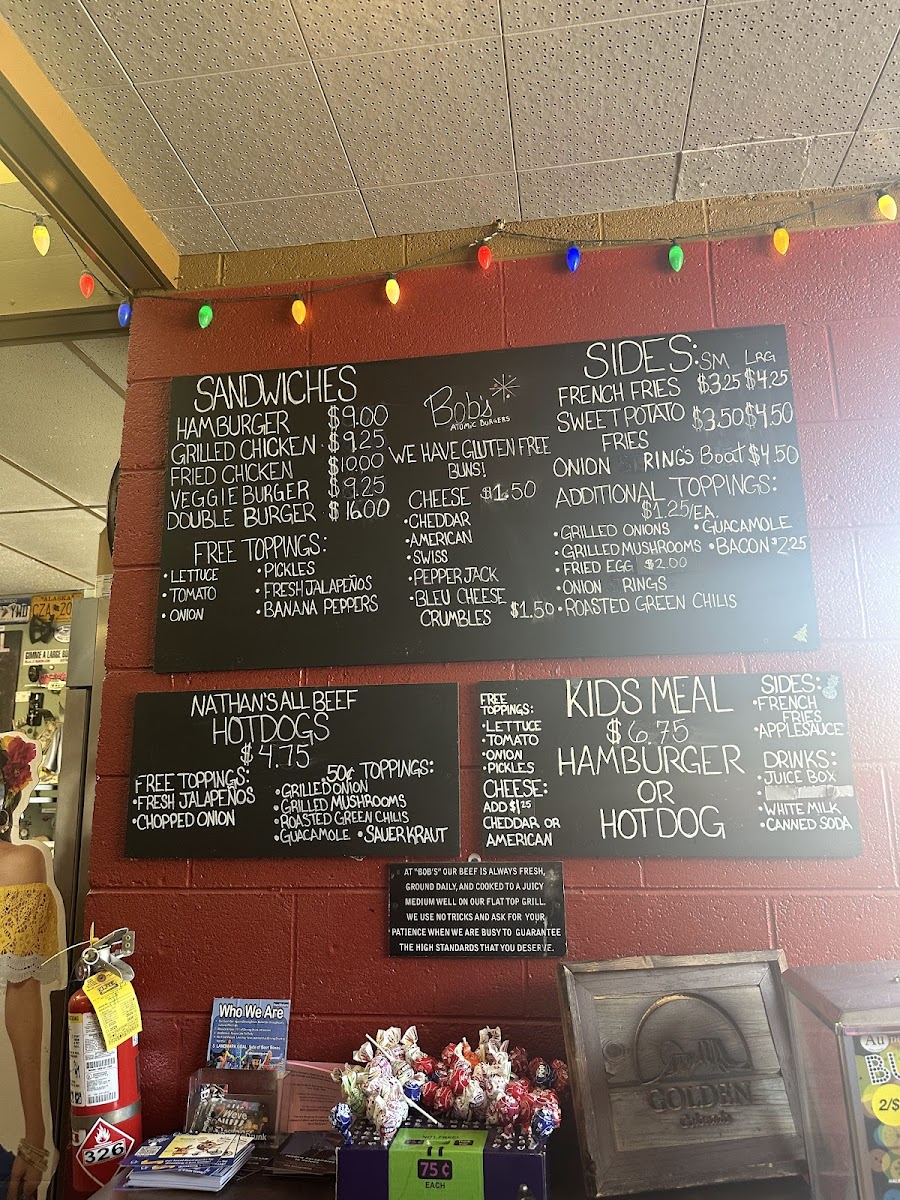 SANDWICHES
HAMBURGER $9.00
GRILLED CHICKEN $9.25
FRIED CHICKEN $10.00
VEGGIE BURGER $9.25
DOUBLE BURGER $16.00
FREE TOPPINGS:
• LETTUCE
• TOMATO
• ONION
• PICKLES
• FRESH JALAPEÑOS
• BANANA PEPPERS
Bobs
ATOMIC BURGERS
WE HAVE GLUTEN FREE
BUNS!
CHEESE $1.50
• CHEDDAR
• AMERICAN
• SWISS
• PEPPER JACK
• BLEU CHEESE
CRUMBLES $1.50
SIDES: SM LRG
FRENCH FRIES $3.25 $4.25
SWEET POTATO $3.50 $4.50
FRIES
ONION RING'S Boat $4.50
ADDITIONAL TOPPINGS:
$1.25/EA.
• GRILLED ONIONS
• GRILLED MUSHROOMS
• FRIED EGG $2.00
• ONION RINGS
• ROASTED GREEN CHILIS
• GUACAMOLE
• BACON $2.25
NATHAN'S ALL BEEF
HOTDOGS
$4.75
FREE TOPPINGS:
• FRESH JALAPEÑOS
• CHOPPED ONION
50¢ TOPPINGS:
• GRILLED ONION
• GRILLED MUSHROOMS
• ROASTED GREEN CHILIS
• GUACAMOLE • SAUERKRAUT
FREE
TOPPINGS:
• LETTUCE
• TOMATO
• ONION
• PICKLES
CHEESE:
ADD $1.25
CHEDDAR OR
AMERICAN
KIDS MEAL
$6.75
HAMBURGER
OR
HOTDOG
SIDES:
• FRENCH
FRIES
• APPLESAUCE
DRINKS:
• JUICE BOX
• WHITE MILK
• CANNED SODA
AT "BOB'S" OUR BEEF IS ALWAYS FRESH,
GROUND DAILY, AND COOKED TO A JUICY
MEDIUM WELL ON OUR FLAT TOP GRILL.
WE USE NO TRICKS AND ASK FOR YOUR
PATIENCE WHEN WE ARE BUSY TO GUARANTEE
THE HIGH STANDARDS THAT YOU DESERVE.
ALASKA
CZA 20
GIMMIE A LARGE
Who We Are
326
75¢
EACH
GOLDEN
2/$